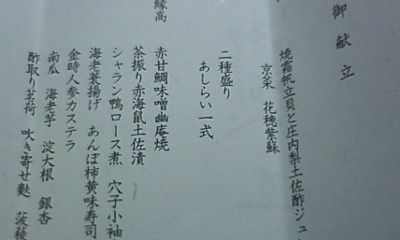 御献立
焼霜帆立貝と庄内梨土佐酢ジュ
京菜 花穂紫蘇
二種盛り
あしらい一式
縁高
赤甘鯛味噌幽庵焼
茶振り赤海鼠土佐漬
シャラン鴨ロース煮 穴子小袖
海老蓑揚げ あんぽ柿黄味寿司
金時人参カステラ
南瓜 海老芋 淀大根 銀杏
酢取り茗荷 吹き寄せ麩 菠薐